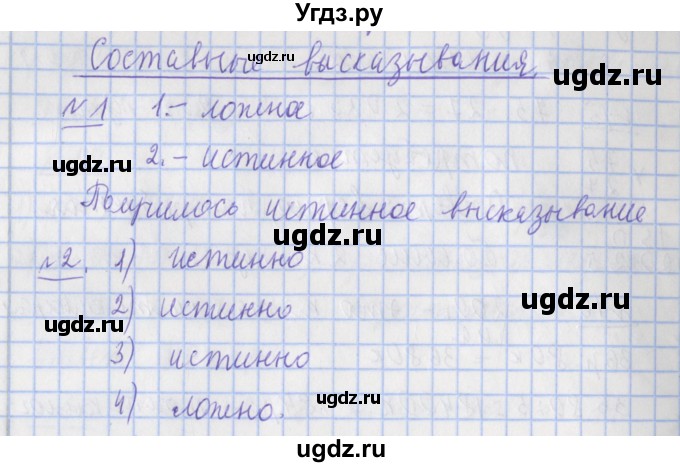 Угдз.ру
Составные высказывания
№1 1.- ложное
2.- истинное
Получилось истинное высказывание
№2. 1) истинно
2) истинно
3) истинно
4) ложно.
ugdz.ru
ugdz.ru
ugdz.ru
ugdz.ru
ugdz.ru
ugdz.ru
ugdz.ru
ugdz.ru
ugdz.ru
ugdz.ru